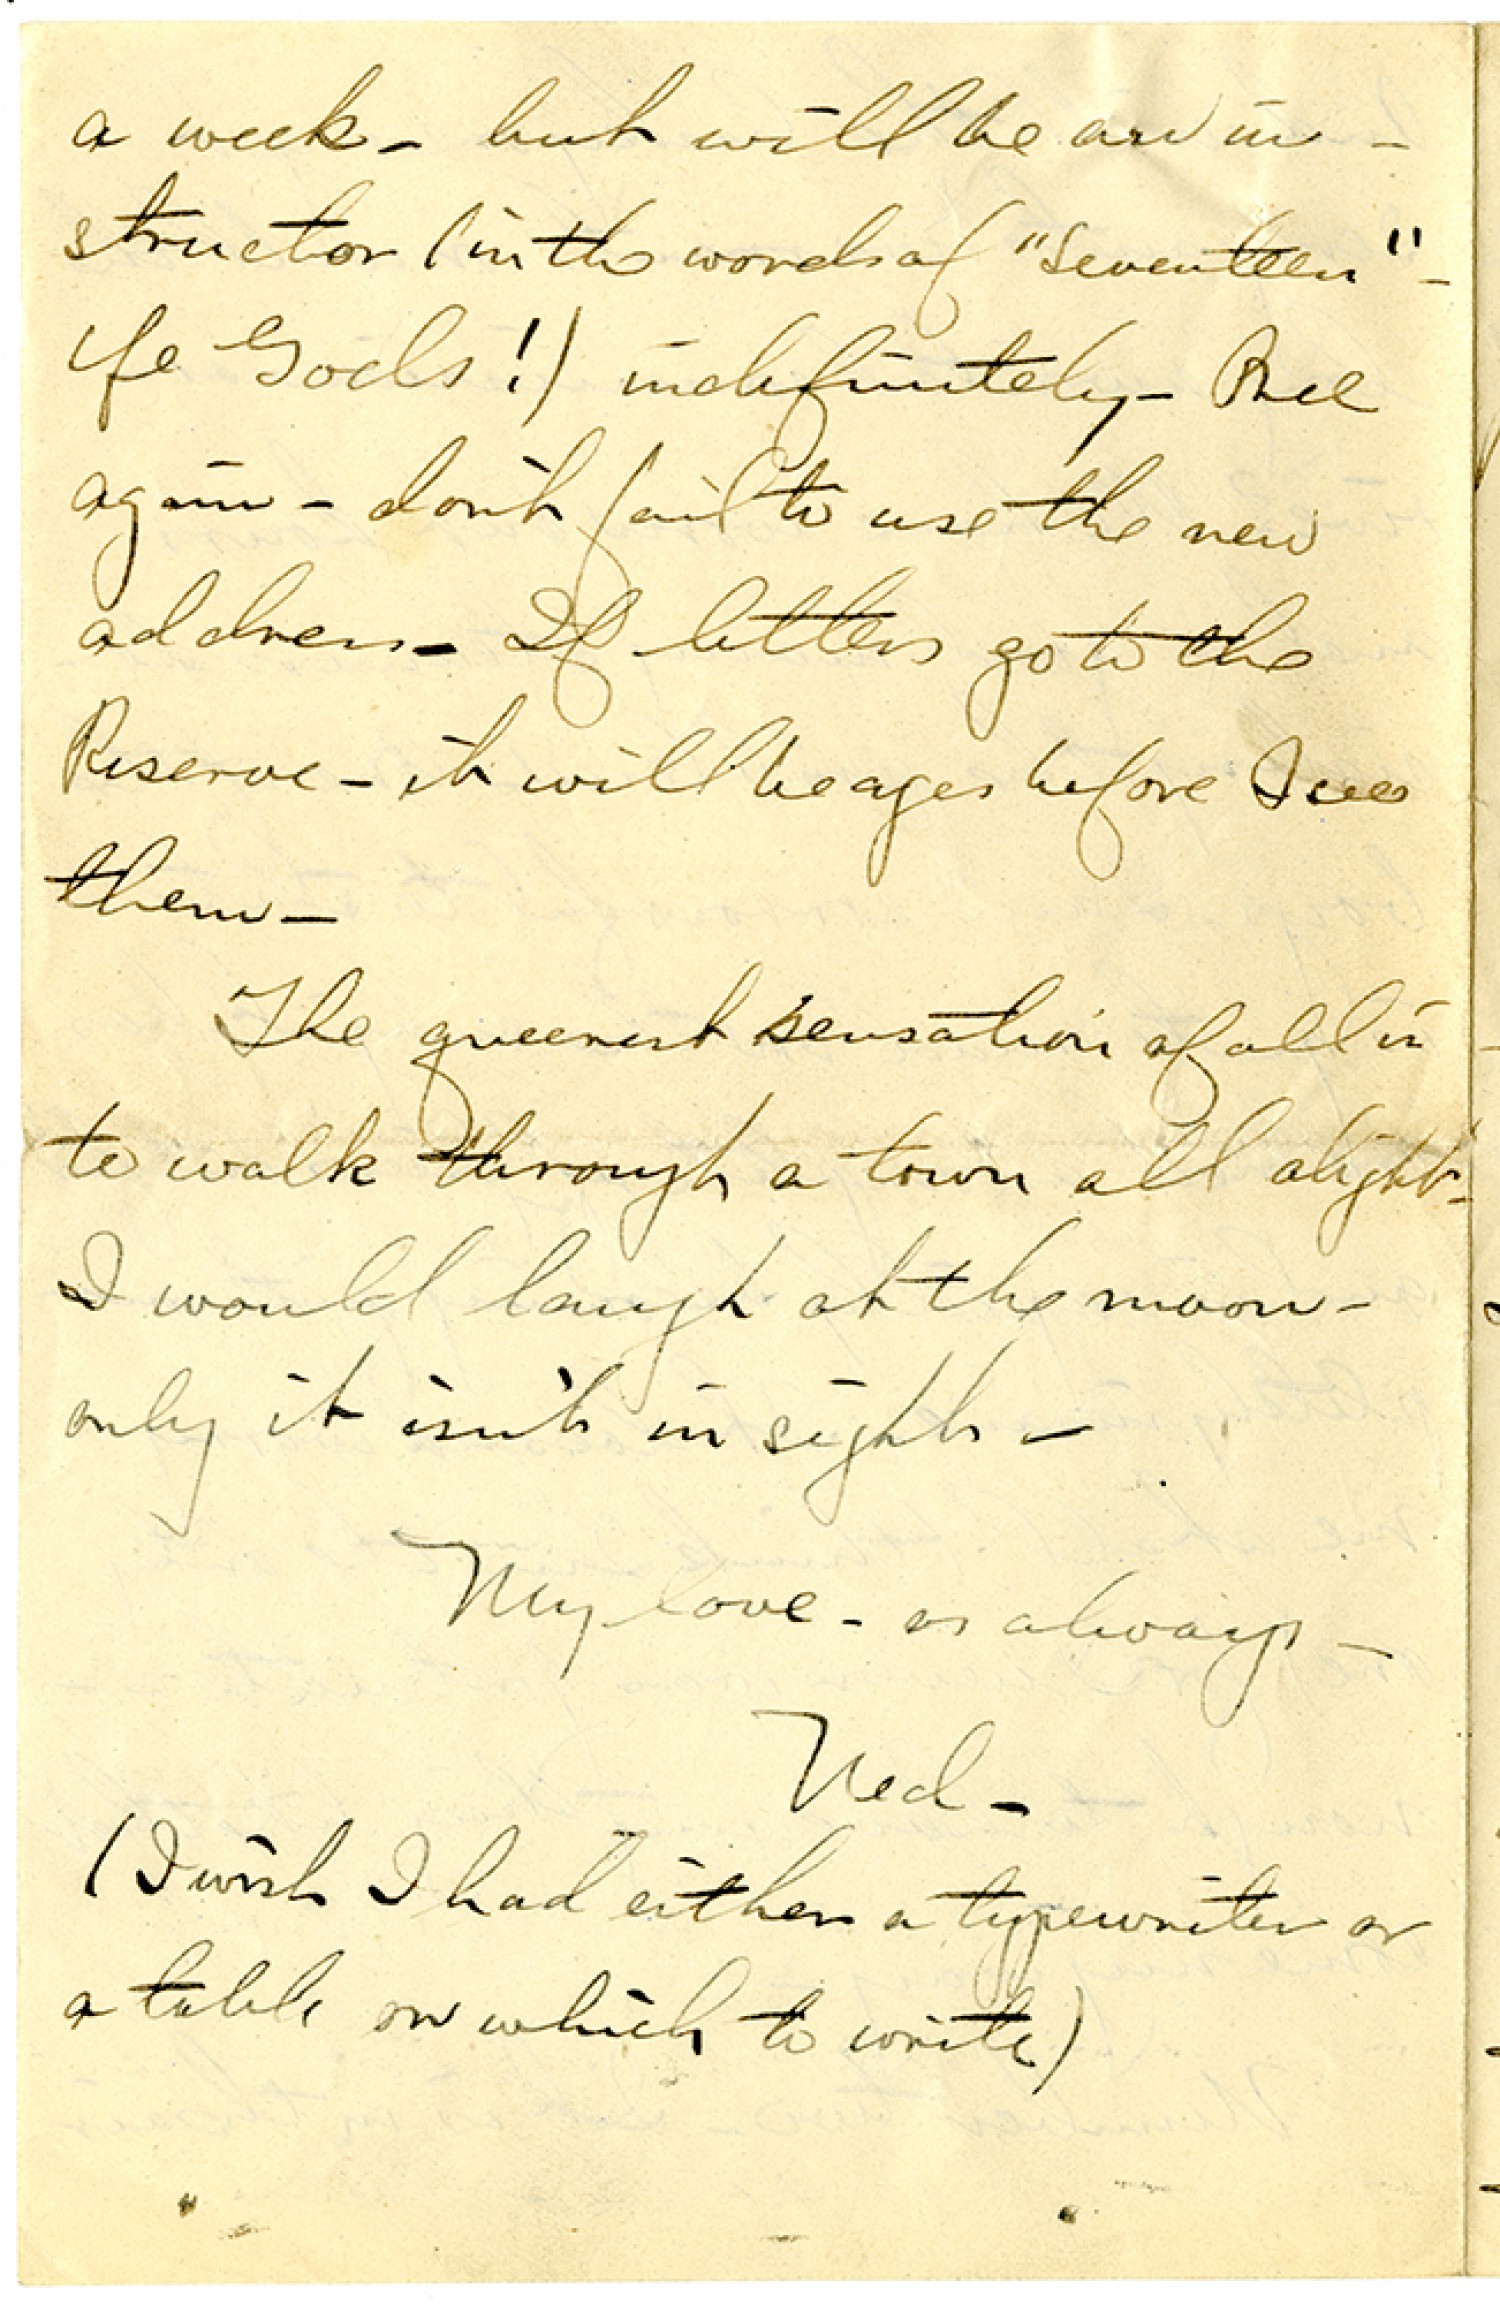 a week – but will be an in-
structor (in the words of "Seventeen" –
Ye Gods!) indefinitely –
again – don't fail to use the new
address – If letters go to the
Reserve – it will be ages before I see
them –
The queerest sensation of all is
to walk through a town all alight –
I would laugh at the moon –
only it isn't in sight –
My love – as always –
Ned –
(I wish I had either a typewriter or
a table on which to write)